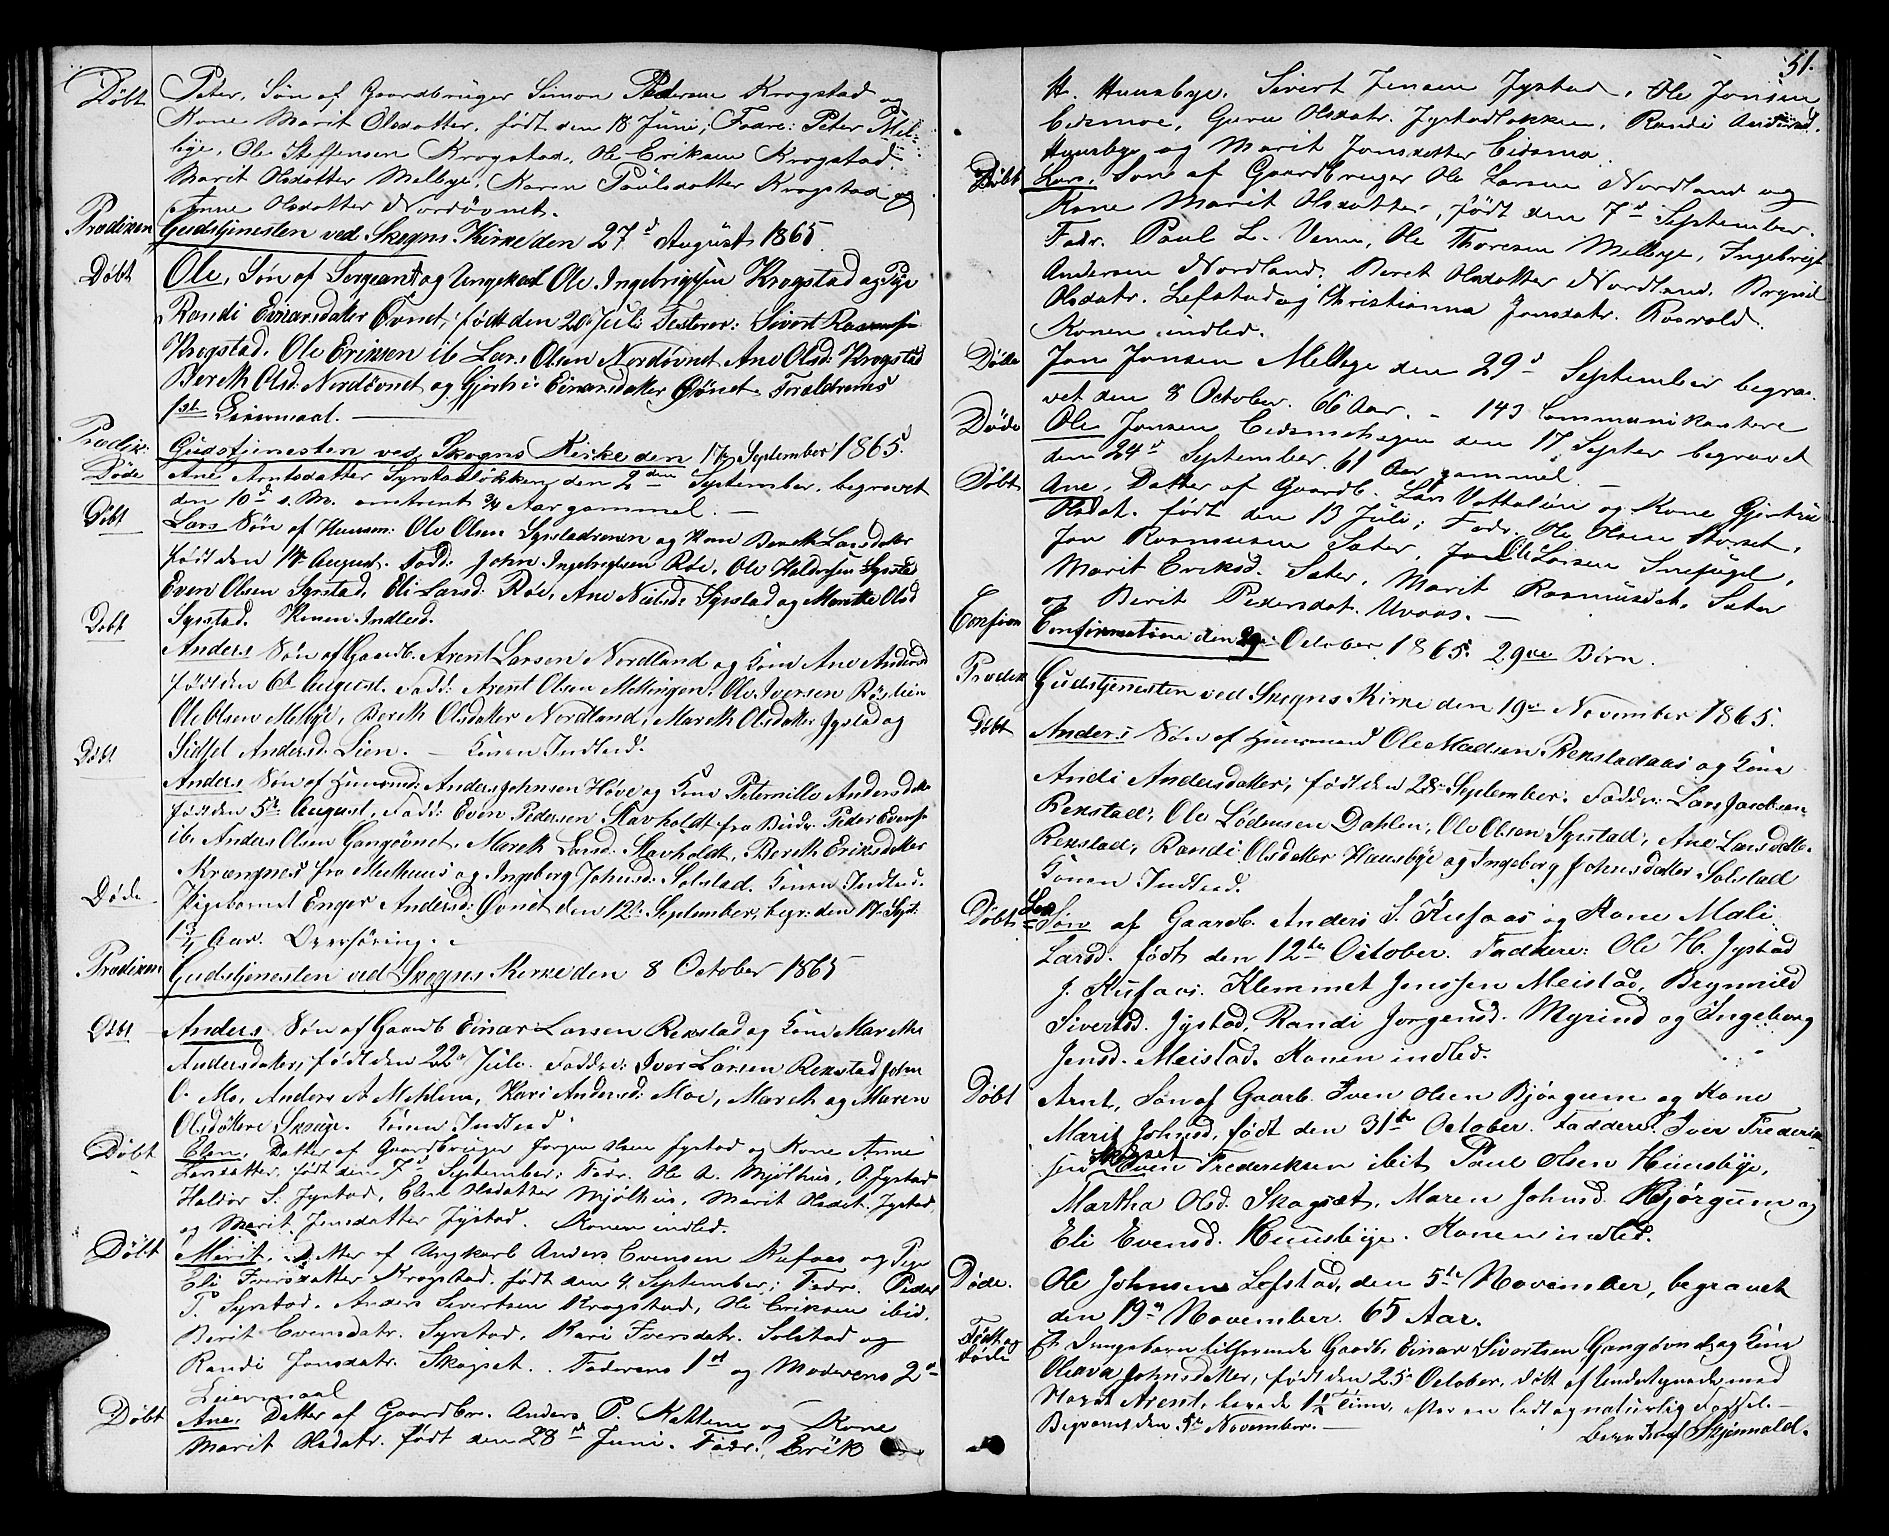 Døbt Peter, Søn af Gaardbruger Simon Pedersen Krogstad og
Kone Marit Olsdatter, født den 18 Juni; Fadre: Peter Mel-
bye, Ole Steffensen Krogstad, Ole Eriksen Krogstad
Marit Olsdatter Melbye, Karen Paulsdatter Krogstad og
Anne Olsdatter Nordøvnet.
Prædiken Gudstjenesten ved Skogns Kirke den 27d August 1865
Døbt Ole, Søn af Sergeant og Ungekarl Ole Ingebrigtsen Krogstad og Pige
Randi Einarsdatter Øvnet, født den 20 Juli Testerer: Sivert Rasmusen
Krogstad. Ole Eriksen ib Lars Olsen Nordøvnet Ane Olsd: Krogstad
Bereth Olsd: Nordøvnet og Gjerti Einarsdatter Øvnet. Foraldrenes
1ste Leiermaal.
Prædik: Gudstjenesten ved Skogns Kirke den 17 September 1865.
Døde Ane Arntsdatter Syrstadløkken den 2den September, begravet
den 10d s. M. omtrent ¾ Aar gammel. —
Døbt Lars Søn af Huusm: Ole Olsen Syrstadreren og Kone Bereth Larsdatter
født den 14 August. Fadd: John Ingebrigtsen Røe, Ole Haldorsen Syrstad
Even Olsen Syrstad, Eli Larsd: Røe, Ane Nielsd: Syrstad og Marethe Olsd
Syrstad. Konen Indled.
Døbt Anders Søn af Gaardb. Arent Larsen Nordland og Kone Ane Andersd
født den 6te August. Fadd: Arent Olsen Mellingen, Ole Iversen Røslien
Ole Olsen Melbye, Bereth Olsdatter Nordland, Mareth Olsdatter Jystad og
Sidsel Andersd. Lien. — Konen Indled.
Døbt Anders Søn af Huusmd: Anders Johnsen Hove og Kone Peternille Andersdatter
født den 5te August. Fadd: Even Pedersen Stavholdt fra Budv. Peder Evensen
ib. Anders Olsen Gangøvnet. Mareth Larsd: Stavholdt, Bereth Eriksdatter
Kræmpnes fra Melhuus og Ingeborg Johnsd: Solstad. Konen Indled.
Døde Pigebarnet Enger Andersd: Øvnet den 12te September; begr: den 17 Sept:
1¾ Aar.
Prædiken Gudstjenesten ved Skogns Kirke den 8 October 1865
Døbt Anders Søn af Gaardb Einar Larsen Rekstad og Kone Mareth
Andersdatter, født den 22de Juli. Faddre: Iver Larsen Rekstad John
O. Mo, Anders A Mehlem, Kari Andersd: Moe, Mareth og Maren
Olsdøttere Skouge. Konen Indled.
Døbt Elen, Datter af Gaardbruger Jørgen Olsen Jystad og Kone Anne
Larsdatter, født den 7d September; Fadr. Ole A. Mjølhus, O. Jystad
Haldor S. Jystad, Elen Olsdatter Mjølhus, Marit Olsdat. Jystad,
og Marit Jonsdatter Jystad. Konen indled.
Døbt Marit, Datter af Ungkarl Anders Evensen Kufaas og Pige
Eli Iversdatter Krogstad, født den 9. September; Fadr. Peder
P. Syrstad. Anders Sivertsen Krogstad, Ole Eriksen ibid,
Berit Evensdatr. Syrstad, Kari Iversdatr. Solstad og
Randi Jonsdatr. Skogset. Faderens 1st og Moderens 2d
Leiermaal
Døbt Ane, Datter af Gaardbr. Anders P. Kattem og Kone
Marit Olsdatr. født den 28d Juni. Fadr. Erik
51.
H. Huusbye. Sivert Jensen Jystad, Ole Jonsen
Eidsmoe, Guru Olsdatr. Jystadløkken, Randi Andersd.
Huusbye og Marit Jonsdatter Eidsmo.
Døbt Lars, Søn af Gaardbruger Ole Larsen Nordland og
Kone Marit Olsdatter, født den 7d September.
Fadr. Paul L. Venn, Ole Thoresen Melbye, Ingebrigt
Andersen Nordland; Beret Olsdatter Nordland. Brynil
Olsdatr. Lefstad og Christianna Jonsdatr. Rosvold.
Konen indled.
Døde Jon Jonsen Melbye den 29d September begra-
vet den 8 October. 66 Aar. — 143 Communikantere
Døde Ole Jonsen Eidsmohagen den 17 Septer begravet
den 24d September. 61 Aar gammel. —
Døbt Ane, Datter af Gaardb. Lars Vottaløn og Kone Gjertru
Olsdat. født den 13 Juli; Fadr. Ole Olsen Storset.
Jon Rasmusen Sæter, Ole Larsen Snefugl,
Marit Eriksd. Sæter, Marit Rasmusdat. Sæter
og Berit Pedersdat. Uvaas. —
Confirm Confirmation den 29 October 1865. 29ve Børn.
Prædik Gudstjenesten ved Skogns Kirke den 19de November 1865.
Døbt Anders Søn af Huusmand Ole Madsen Rekstadaas og Kone
Andi Andersdatter, født den 28 September. Faddr: Lars Jacobsen
Rekstad; Ole Lødensen Dahlen; Ole Olsen Syrstad; Ane Larsdatter
Rekstad; Randi Olsdatter Huusbye og Ingeborg Johnsdatter Solstad
Konen Indled.
Døbt Søn af Gaardb. Anders S. Kufaas og Kone Mali
Larsd. født den 12te October. Faddere: Ole H. Jystad
J. Kufaas. Klemmet Jenssen Meistad, Brynnild
Sivertsd. Jystad, Randi Jorgensd. Myrind og Ingeborg
Jensd. Meistad. Konen indled.
Døbt Arnt, Søn af Gaarb. Iven Olsen Bjørgum og Kone
Marit Johnsd. født den 31te October. Faddere: Iver Frederik-
sen Skogset Even Frederiksen ibit Paul Olsen Huusbye,
Martha Olsd. Skogsæt, Maren Johnsd. Bjørgum og
Eli Evensd. Huusbye. Konen indled.
Døde. Ole Johnsen Lefstad, den 5te November, begravet
den 19de November 65 Aar.
Født og døde Et Drengebarn tilhørende Gaardb. Einar Sivertsen Gangøvnet og Kone
Olava Johnsdatter, født den 25 October. døbt af Undertegnede med
Navnet Arent, levede 1½ Time, efter en let og naturlig Fødsel. —
Begravet den 5te November. —
Skjenvald.